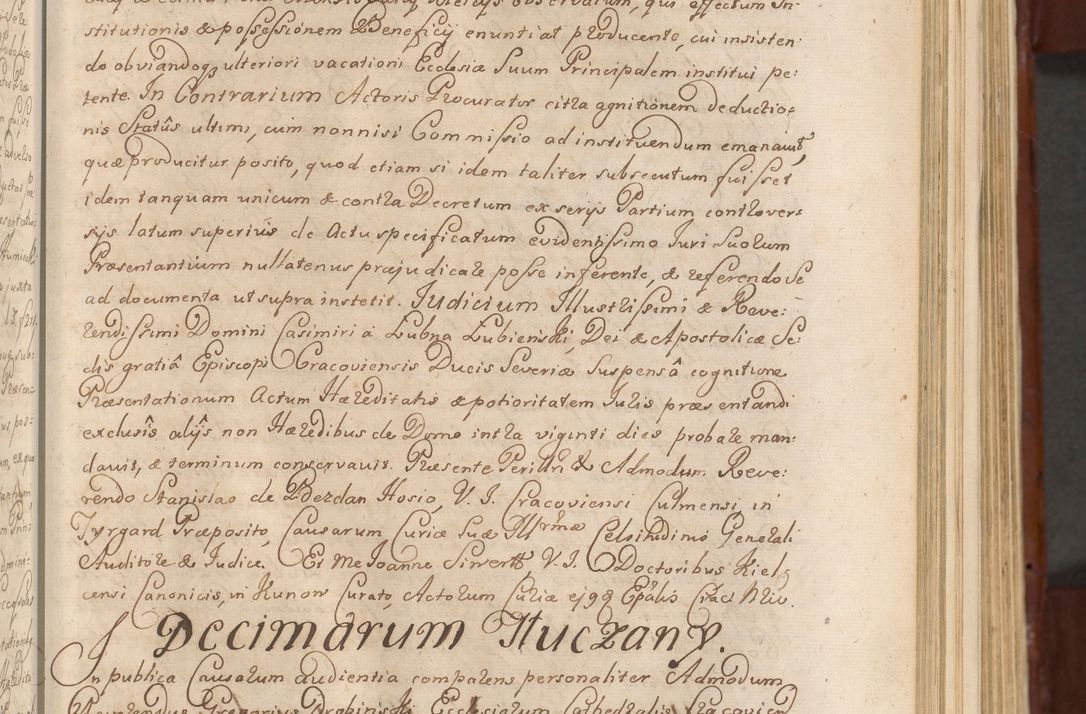 stitutionis & possessionem Beneficij enuntiat producente, cui insisten:
do obviandoqз ulteriori vacationi Ecclesiæ Suum Principalem institui pe:
tente. In Contrarium Actoris Procurator citra agnitionem deductio:
nis Statûs ultimi, cum nonnisi Commissio ad instituendum emanavit,
quæ producitur posito, quod etiam si idem taliter subsecutum fuisset
idem tanquam unicum & contra Decretum ex serijs Partium controver:
sijs latum superiùs de Actu specificatum evidentissimo Juri Suorum
Præsentantium nullatenus præjudicare posse inferente, & referendo Se
ad documenta ut supra institit. Judicium Illustrissimi & Reve:
rendissimi Domini Casimiri à Łubna Łubieński, Dei & Apostolicæ Se:
dis gratiâ Episcopi Cracoviensis Ducis Severiæ Suspensâ cognitione
Præsentationum Actum Hæreditatis & potioritatem Juris præsentandi
exclusîs alijs non Hæredibus de Domo intra viginti dies probare man:
davit, & terminum conservavit. Præsente Perillri & Admodum Reve:
rendo Stanislao de Bezdan Hosio, V. J. Cracoviensi Culmensi, in
Tyrgard Præposito, Causarum Curiæ Suæ Illrmæ Celsitudinis Generali
Auditore & Judice. Et Me Joanne Siwertt, V. J. Doctoribus Kiel:
censi Canonicis, in Kunow Curato, Actorum Curiæ ejqg Epãlis Crac: Nrio.
Decimarum Tuczany.
In publica Causarum audientia comparens personaliter Admodum
Reverendus Gregorius Drobinski Ecclesiarum Cathedralis Cracovien: